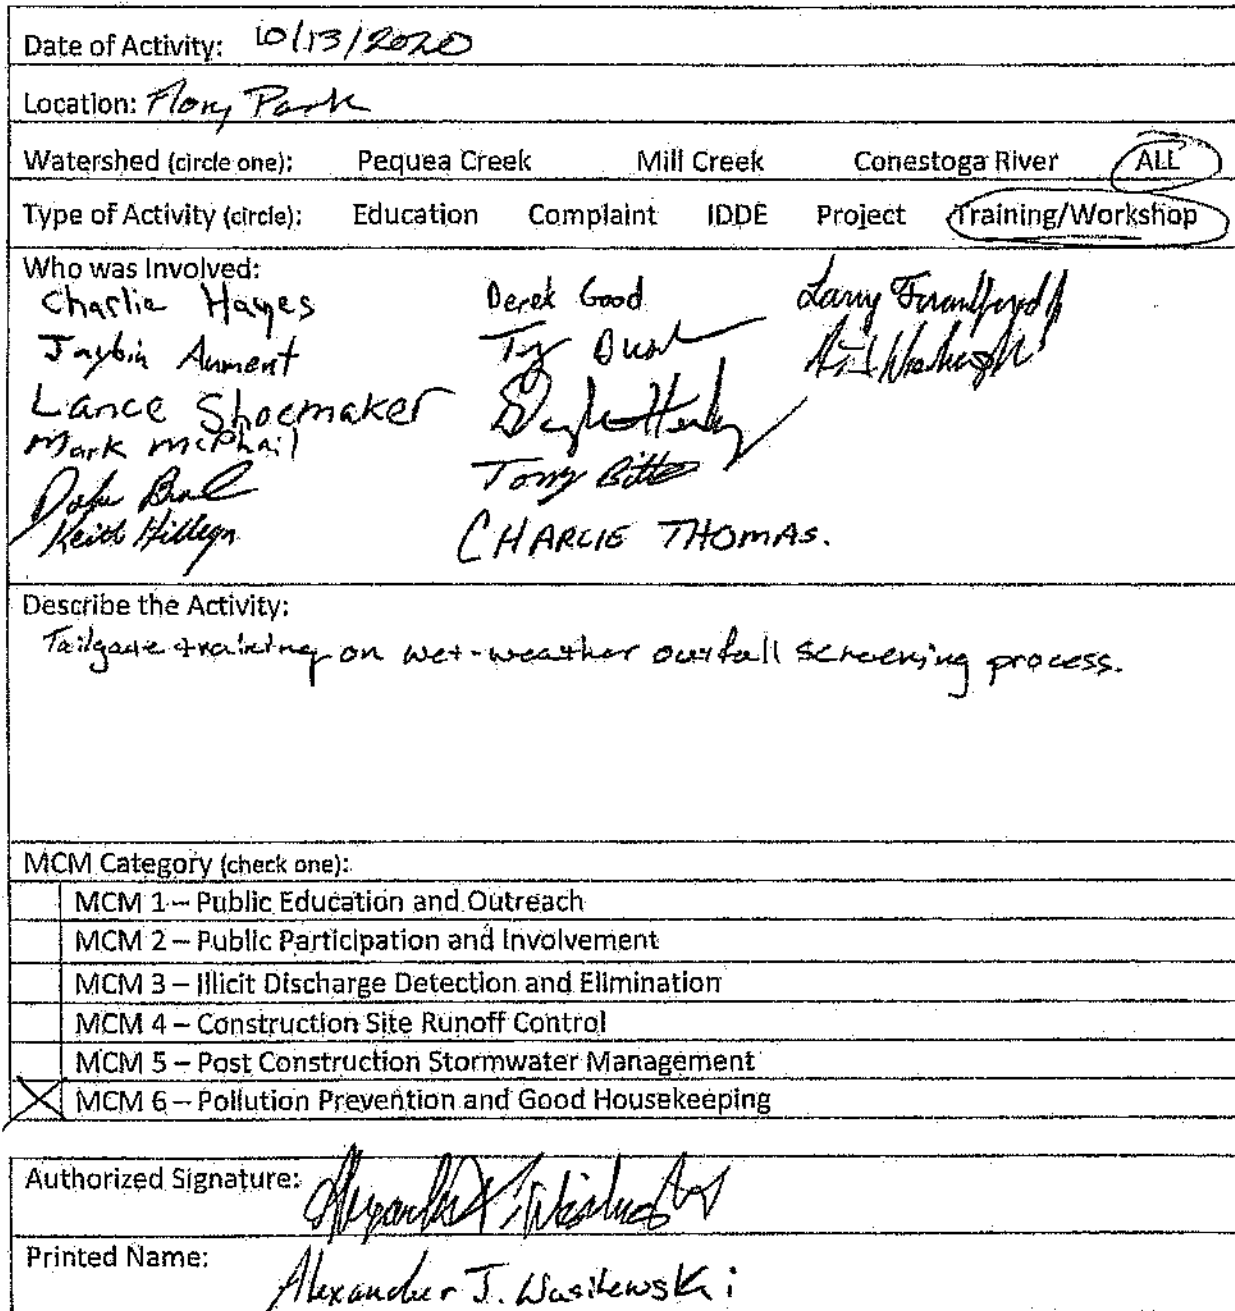 Date of Activity: 10/13/2020
Location: Flory Park
Watershed (circle one): Pequea Creek Mill Creek Conestoga River ALL
Type of Activity (circle): Education Complaint IDDE Project Training/Workshop
Who was Involved:
Charlie Hayes Derek Good Larry
Jaybin Aument Ty
Lance Shoemaker
Mark McPhail Tony
Keith CHARLIE THOMAS.
Describe the Activity:
Tailgate training on wet-weather outfall screening process.
MCM Category (check one):
MCM 1 – Public Education and Outreach
MCM 2 – Public Participation and Involvement
MCM 3 – Illicit Discharge Detection and Elimination
MCM 4 – Construction Site Runoff Control
MCM 5 – Post Construction Stormwater Management
X MCM 6 – Pollution Prevention and Good Housekeeping
Authorized Signature:
Printed Name: Alexander J. Wasilewski